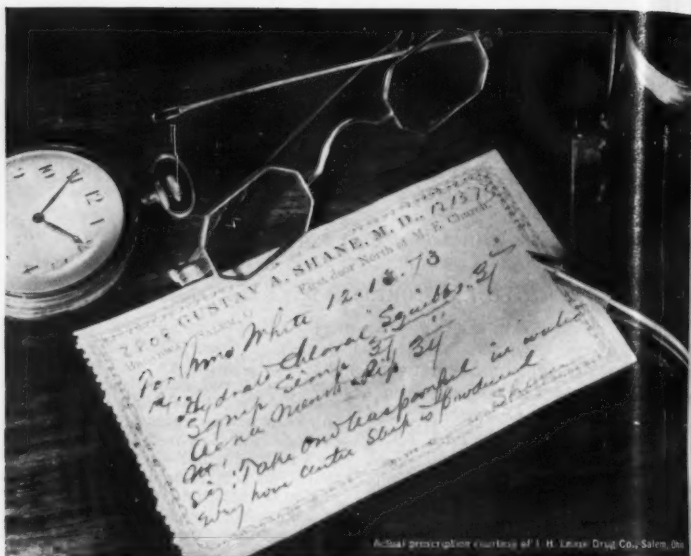 GUSTAV A. SHANE, M. D.,
First door North of M. E. Church,
For Mrs White 12.13.73
Hydrate Chloral Squibbs. ℨj
Syrup Simp ℨij
Aqua Menth Pip ℨij
Sig: Take one teaspoonful in water
every hour until Sleep is produced
Shane
Actual prescription courtesy of J. H. Lease Drug Co., Salem, Ohio